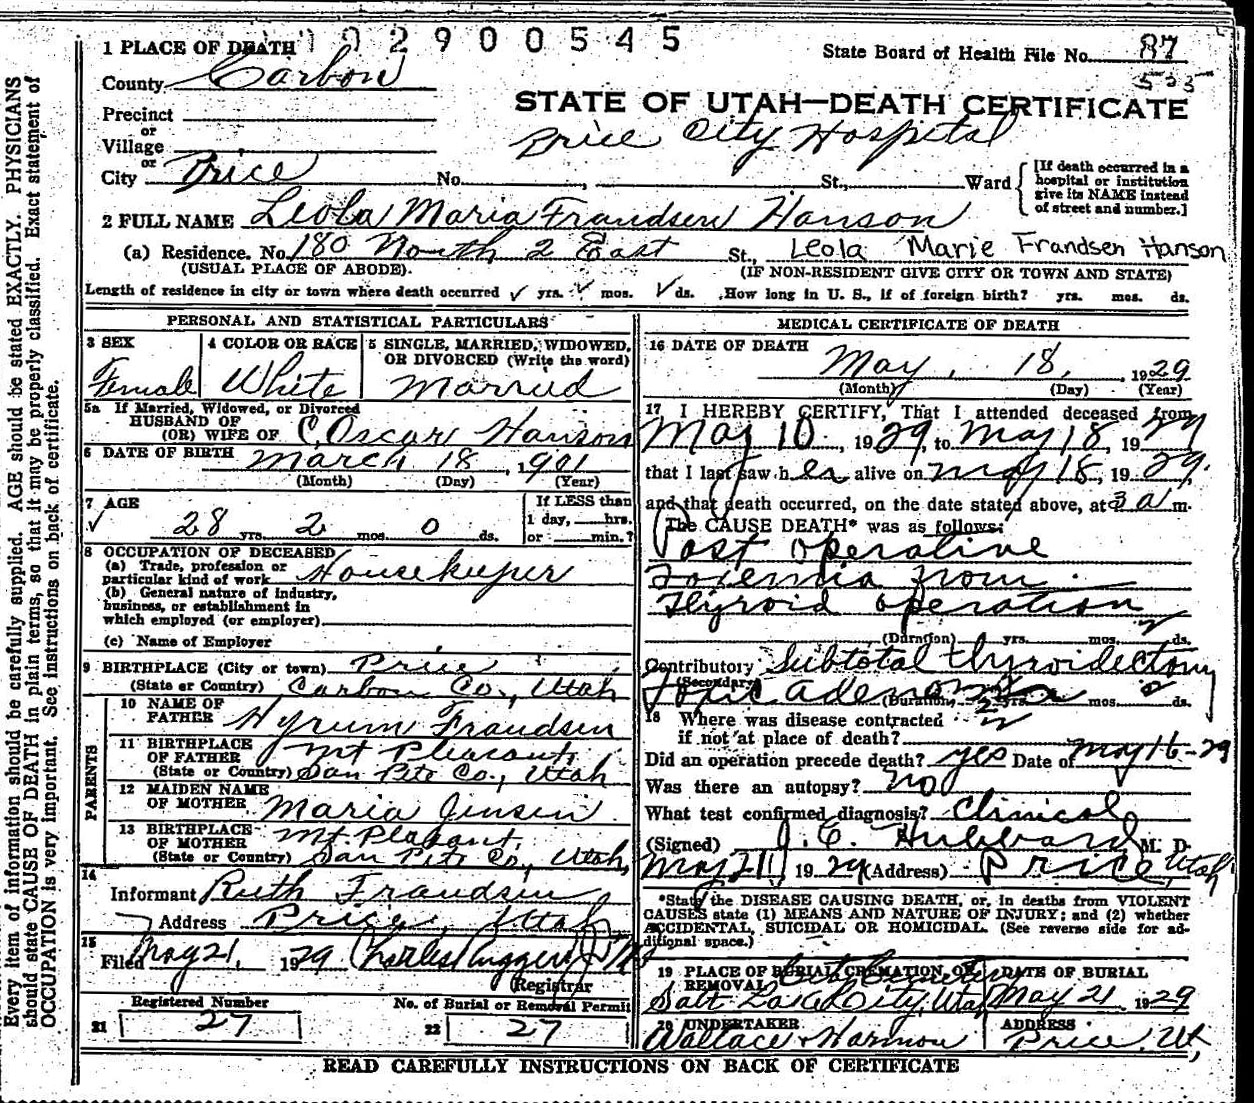 1 PLACE OF DEATH 1 9 2 9 0 0 5 4 5
State Board of Health File No. 87
535
County Carbon
STATE OF UTAH—DEATH CERTIFICATE
Precinct
or
Price City Hospital
Village
or
City Price No. , St., Ward
[If death occurred in a
hospital or institution
give its NAME instead
of street and number.]
2 FULL NAME Leola Maria Frandsen Hanson
(a) Residence. No. 180 North 2 East St., Leola Marie Frandsen Hanson
(USUAL PLACE OF ABODE). (IF NON-RESIDENT GIVE CITY OR TOWN AND STATE)
Length of residence in city or town where death occurred ✓ yrs. ✓ mos. ✓ ds. How long in U. S., if of foreign birth? yrs. mos. ds.
PERSONAL AND STATISTICAL PARTICULARS
3 SEX 4 COLOR OR RACE 5 SINGLE, MARRIED, WIDOWED,
OR DIVORCED (Write the word)
Female White Married
5a If Married, Widowed, or Divorced
HUSBAND OF
(OR) WIFE OF C. Oscar Hanson
6 DATE OF BIRTH March 18, 1901
(Month) (Day) (Year)
7 AGE If LESS than
✓ 28 yrs. 2 mos. 0 ds. 1 day, hrs.
or min.?
8 OCCUPATION OF DECEASED
(a) Trade, profession or
particular kind of work Housekeeper
(b) General nature of industry,
business, or establishment in
which employed (or employer)
(c) Name of Employer
9 BIRTHPLACE (City or town) Price
(State or Country) Carbon Co., Utah
PARENTS
10 NAME OF
FATHER Hyrum Frandsen
11 BIRTHPLACE
OF FATHER Mt Pleasant,
(State or Country) San Pete Co., Utah
12 MAIDEN NAME
OF MOTHER Maria Jensen
13 BIRTHPLACE
OF MOTHER Mt. Pleasant,
(State or Country) San Pete Co., Utah,
14
Informant Ruth Frandsen
Address Price, Utah
15
Filed May 21, 1929 Charles Ruggeri
Registrar
Registered Number No. of Burial or Removal Permit
21 27 22 27
MEDICAL CERTIFICATE OF DEATH
16 DATE OF DEATH
May, 18, 1929
(Month) (Day) (Year)
17 I HEREBY CERTIFY, That I attended deceased from
May 10, 1929, to May 18, 1929
that I last saw her alive on May 18, 1929.
and that death occurred, on the date stated above, at 3 a m.
The CAUSE DEATH* was as follows:
Post operative
Toxemia from
Thyroid operation
(Duration) yrs. mos. 2 ds.
Contributory Subtotal thyroidectomy
(Secondary)
Toxic Adenoma (Duration) yrs. mos. 2 ds.
18 Where was disease contracted
if not at place of death?
Did an operation precede death? yes Date of May 16-29
Was there an autopsy? no
What test confirmed diagnosis? Clinical
(Signed) J. C. Hubbard M. D.
May 21, 1929 (Address) Price, Utah
*State the DISEASE CAUSING DEATH, or, in deaths from VIOLENT
CAUSES state (1) MEANS AND NATURE OF INJURY; and (2) whether
ACCIDENTAL, SUICIDAL OR HOMICIDAL. (See reverse side for ad-
ditional space.)
19 PLACE OF BURIAL CREMATION, OR DATE OF BURIAL
REMOVAL City Cemetery
Salt Lake City, Utah May 21 1929
20 UNDERTAKER ADDRESS
Wallace & Harmon Price, Ut,
READ CAREFULLY INSTRUCTIONS ON BACK OF CERTIFICATE
Every item of information should be carefully supplied. AGE should be stated EXACTLY. PHYSICIANS
should state CAUSE OF DEATH in plain terms, so that it may be properly classified. Exact statement of
OCCUPATION is very important. See instructions on back of certificate.